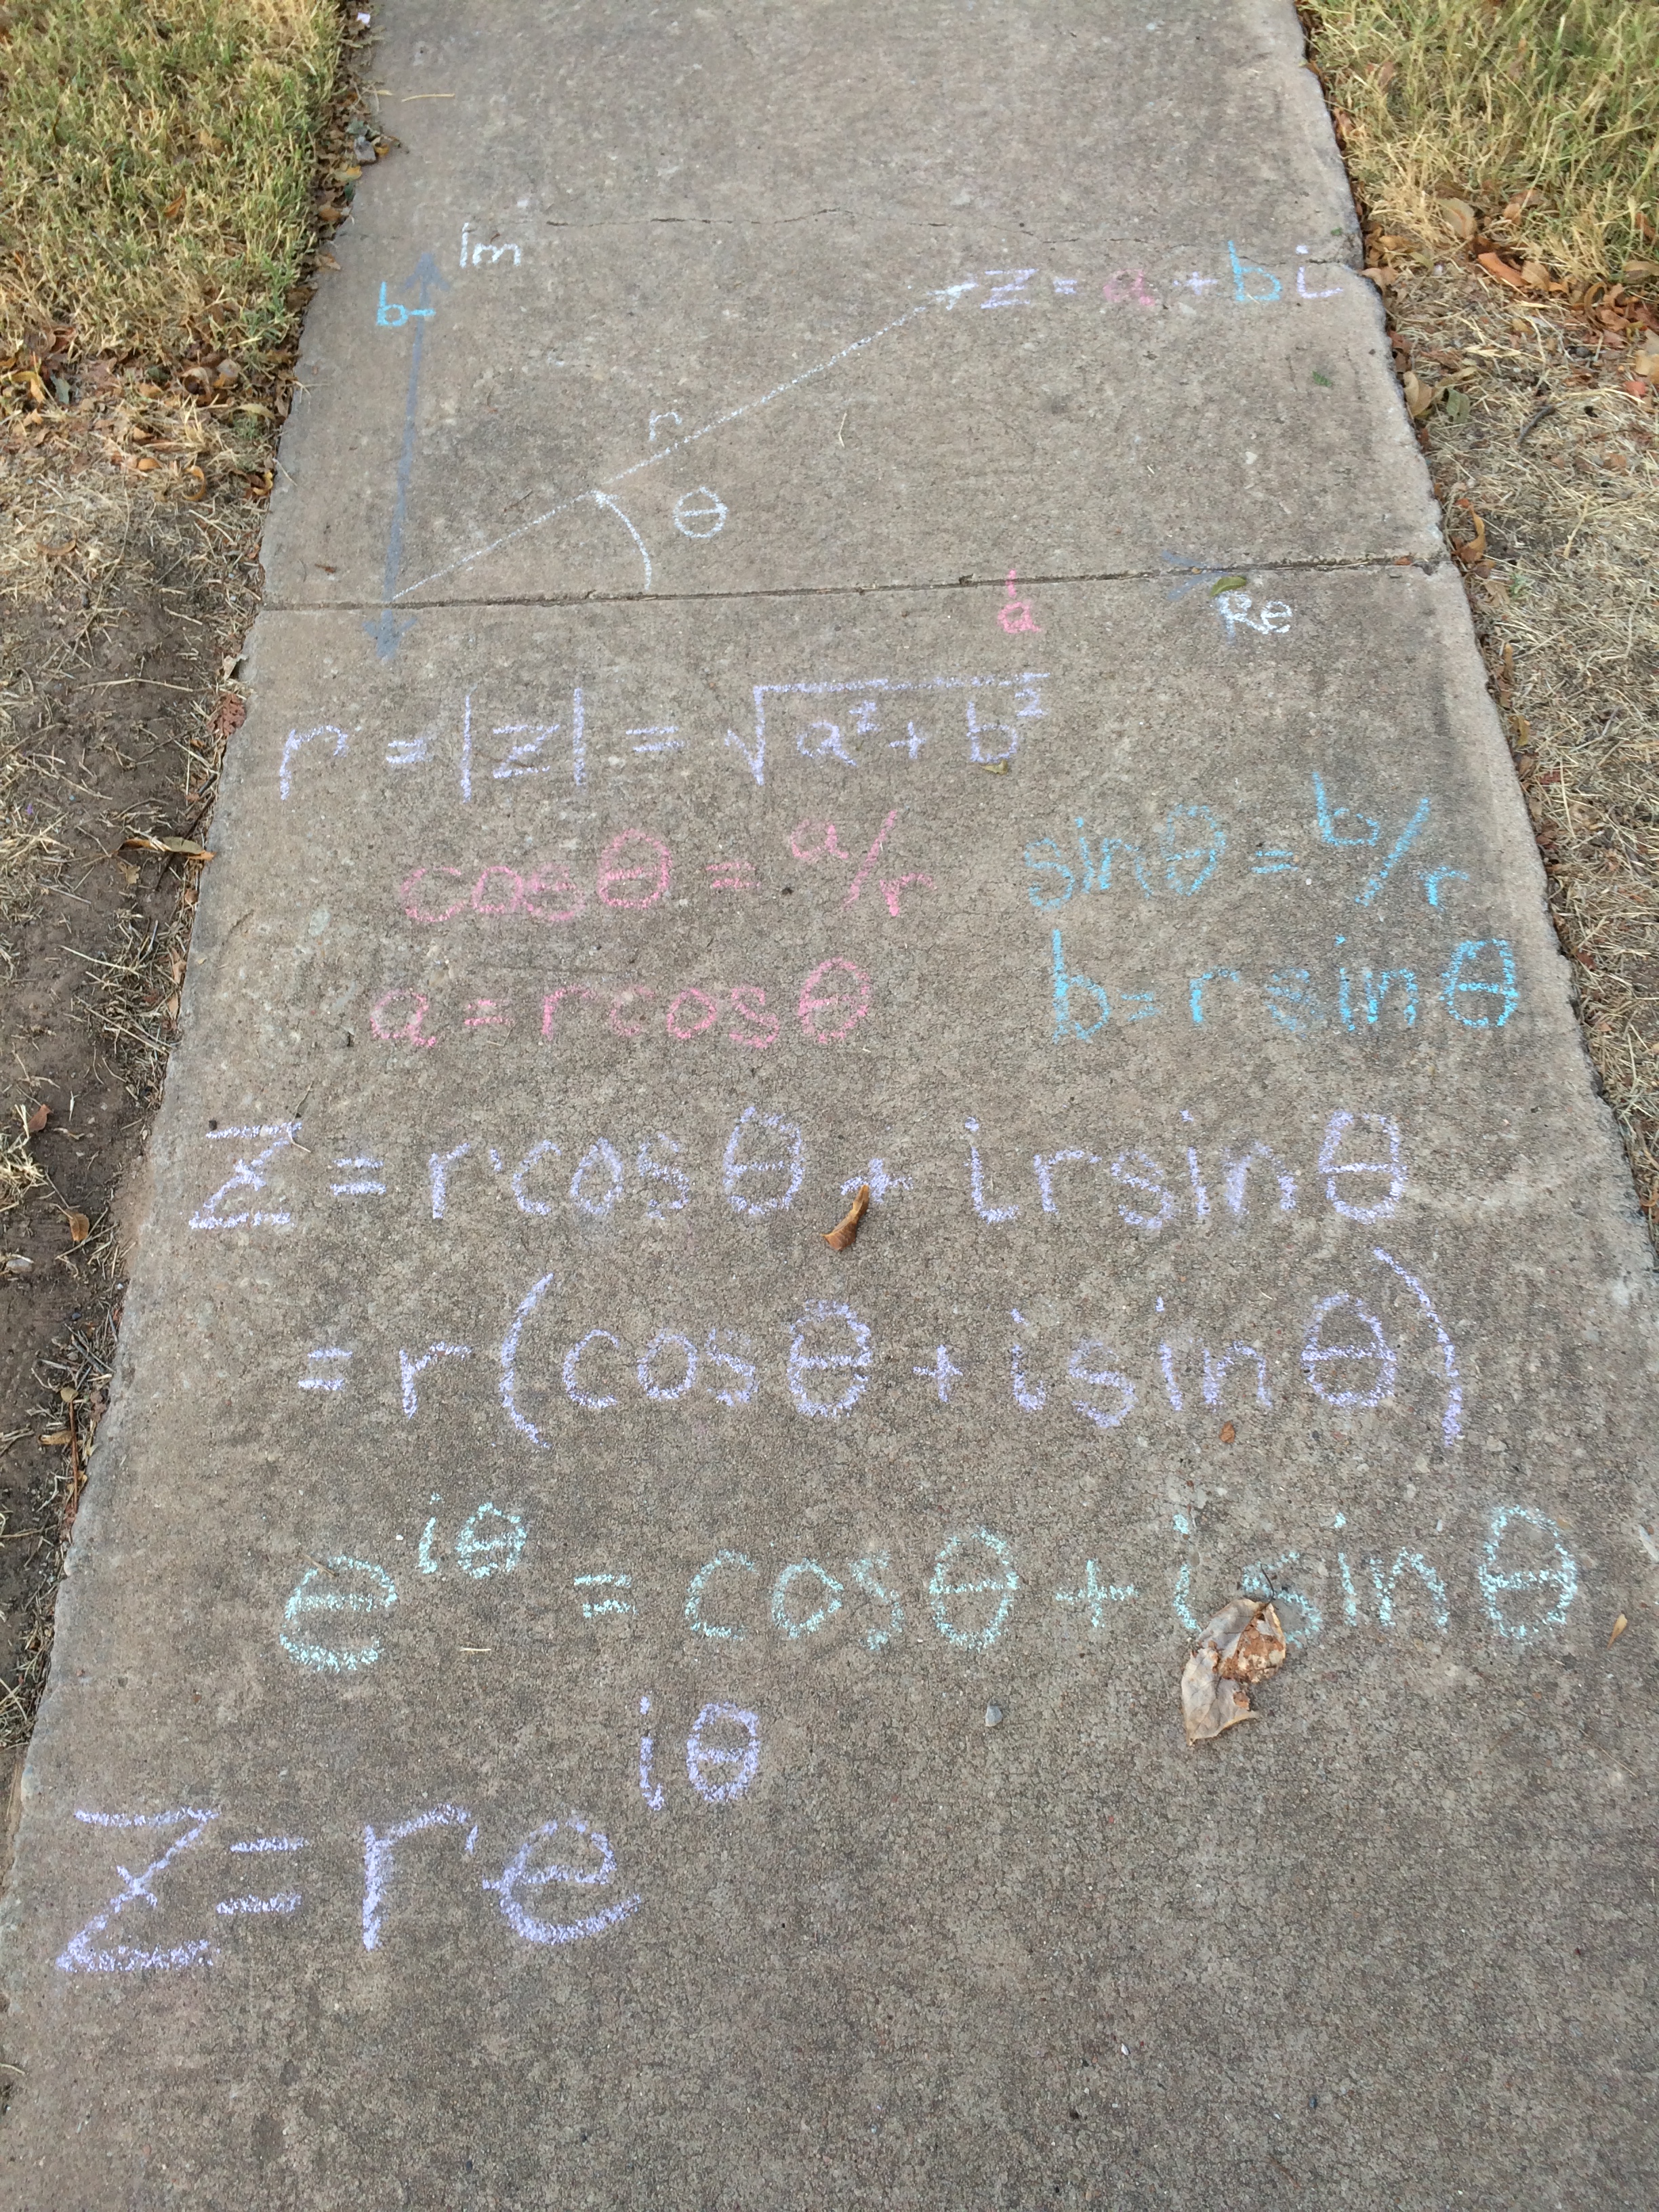 Im
b
z = a + bi
r
θ
a
Re
r = |z| = √a² + b²
cosθ = a/r sinθ = b/r
a = rcosθ b = rsinθ
z = rcosθ + irsinθ
= r(cosθ + isinθ)
e^iθ = cosθ + isinθ
z = re^iθ